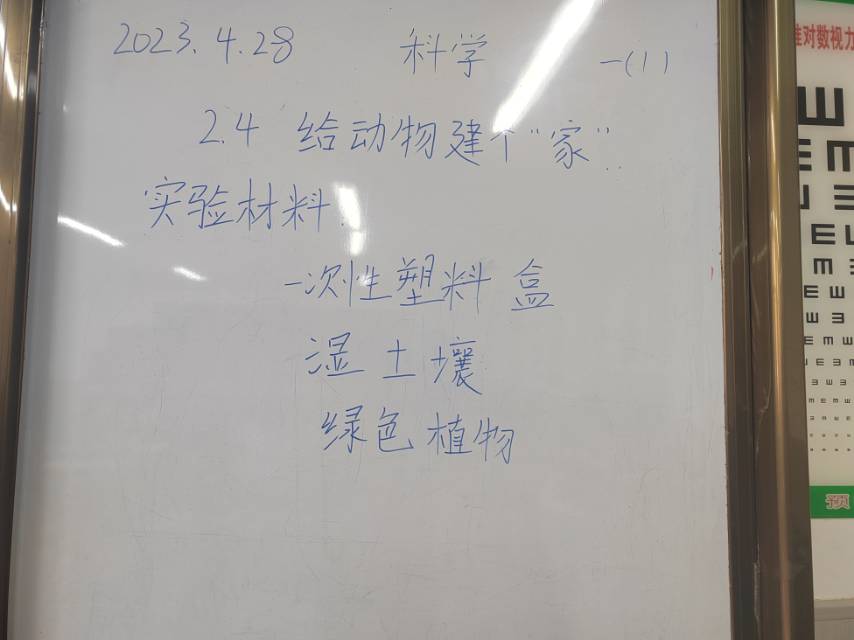 2023.4.28 科学 一(1)
2.4 给动物建个“家”
实验材料:
一次性塑料盒
湿土壤
绿色植物
准对数视力
E
E M
E
E
M E
E M